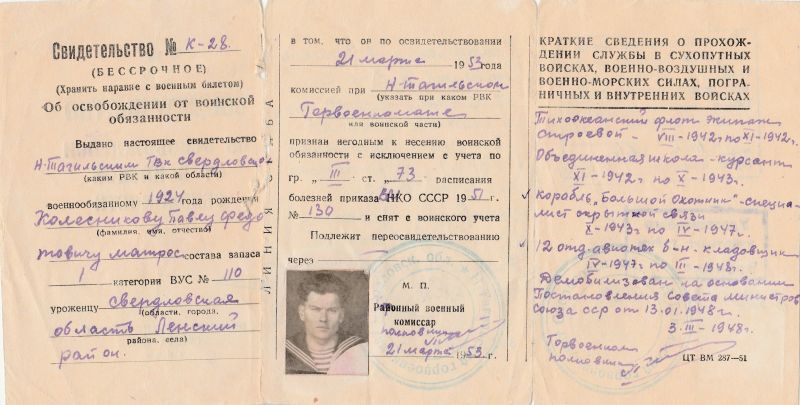 Свидетельство № К-28.
(БЕССРОЧНОЕ)
(Хранить наравне с военным билетом)
Об освобождении от воинской
обязанности
Выдано настоящее свидетельство
Н-Тагильским Гвк свердловско
(каким РВК и какой области)
военнообязанному 1924 года рождения
Колесникову Павлу Федо
(фамилия, имя, отчество)
товичу матрос состава запаса
1 категории ВУС № 110
уроженцу свердловская
(области, города,
область Ленский
района, села)
район.
ЛИНИЯ СГИБА
в том, что он по освидетельствовании
21 марта 1953 года
комиссией при Н-Тагильском
(указать при каком РВК
Горвоенкомате
или воинской части)
признан негодным к несению воинской
обязанности с исключением с учета по
гр. III ст. 73 расписания
болезней приказа НКО СССР 1951 г.
№ 130 и снят с воинского учета
Подлежит переосвидетельствованию
через
М. П.
Районный военный
комиссар
полковник
21 марта 1953 г.
КРАТКИЕ СВЕДЕНИЯ О ПРОХОЖ-
ДЕНИИ СЛУЖБЫ В СУХОПУТНЫХ
ВОЙСКАХ, ВОЕННО-ВОЗДУШНЫХ И
ВОЕННО-МОРСКИХ СИЛАХ, ПОГРА-
НИЧНЫХ И ВНУТРЕННИХ ВОЙСКАХ
Тихоокеанский флот экипаж
строевой - VIII-1942 г по XI-1942 г.
Объединенная школа - курсант
XI-1942 г по X-1943 г.
корабль "Большой Охотник" - специа-
лист скрытной связи
X-1943 г по IV-1947 г.
12 отд. авиатех б-н. кладовщик
IV-1947 г по III-1948 г.
Демобилизован на основании
Постановления Совета министров
Союза ССР от 13.01.1948 г.
3.III-1948 г.
Горвоенком
полковник
ЦТ ВМ 287—51